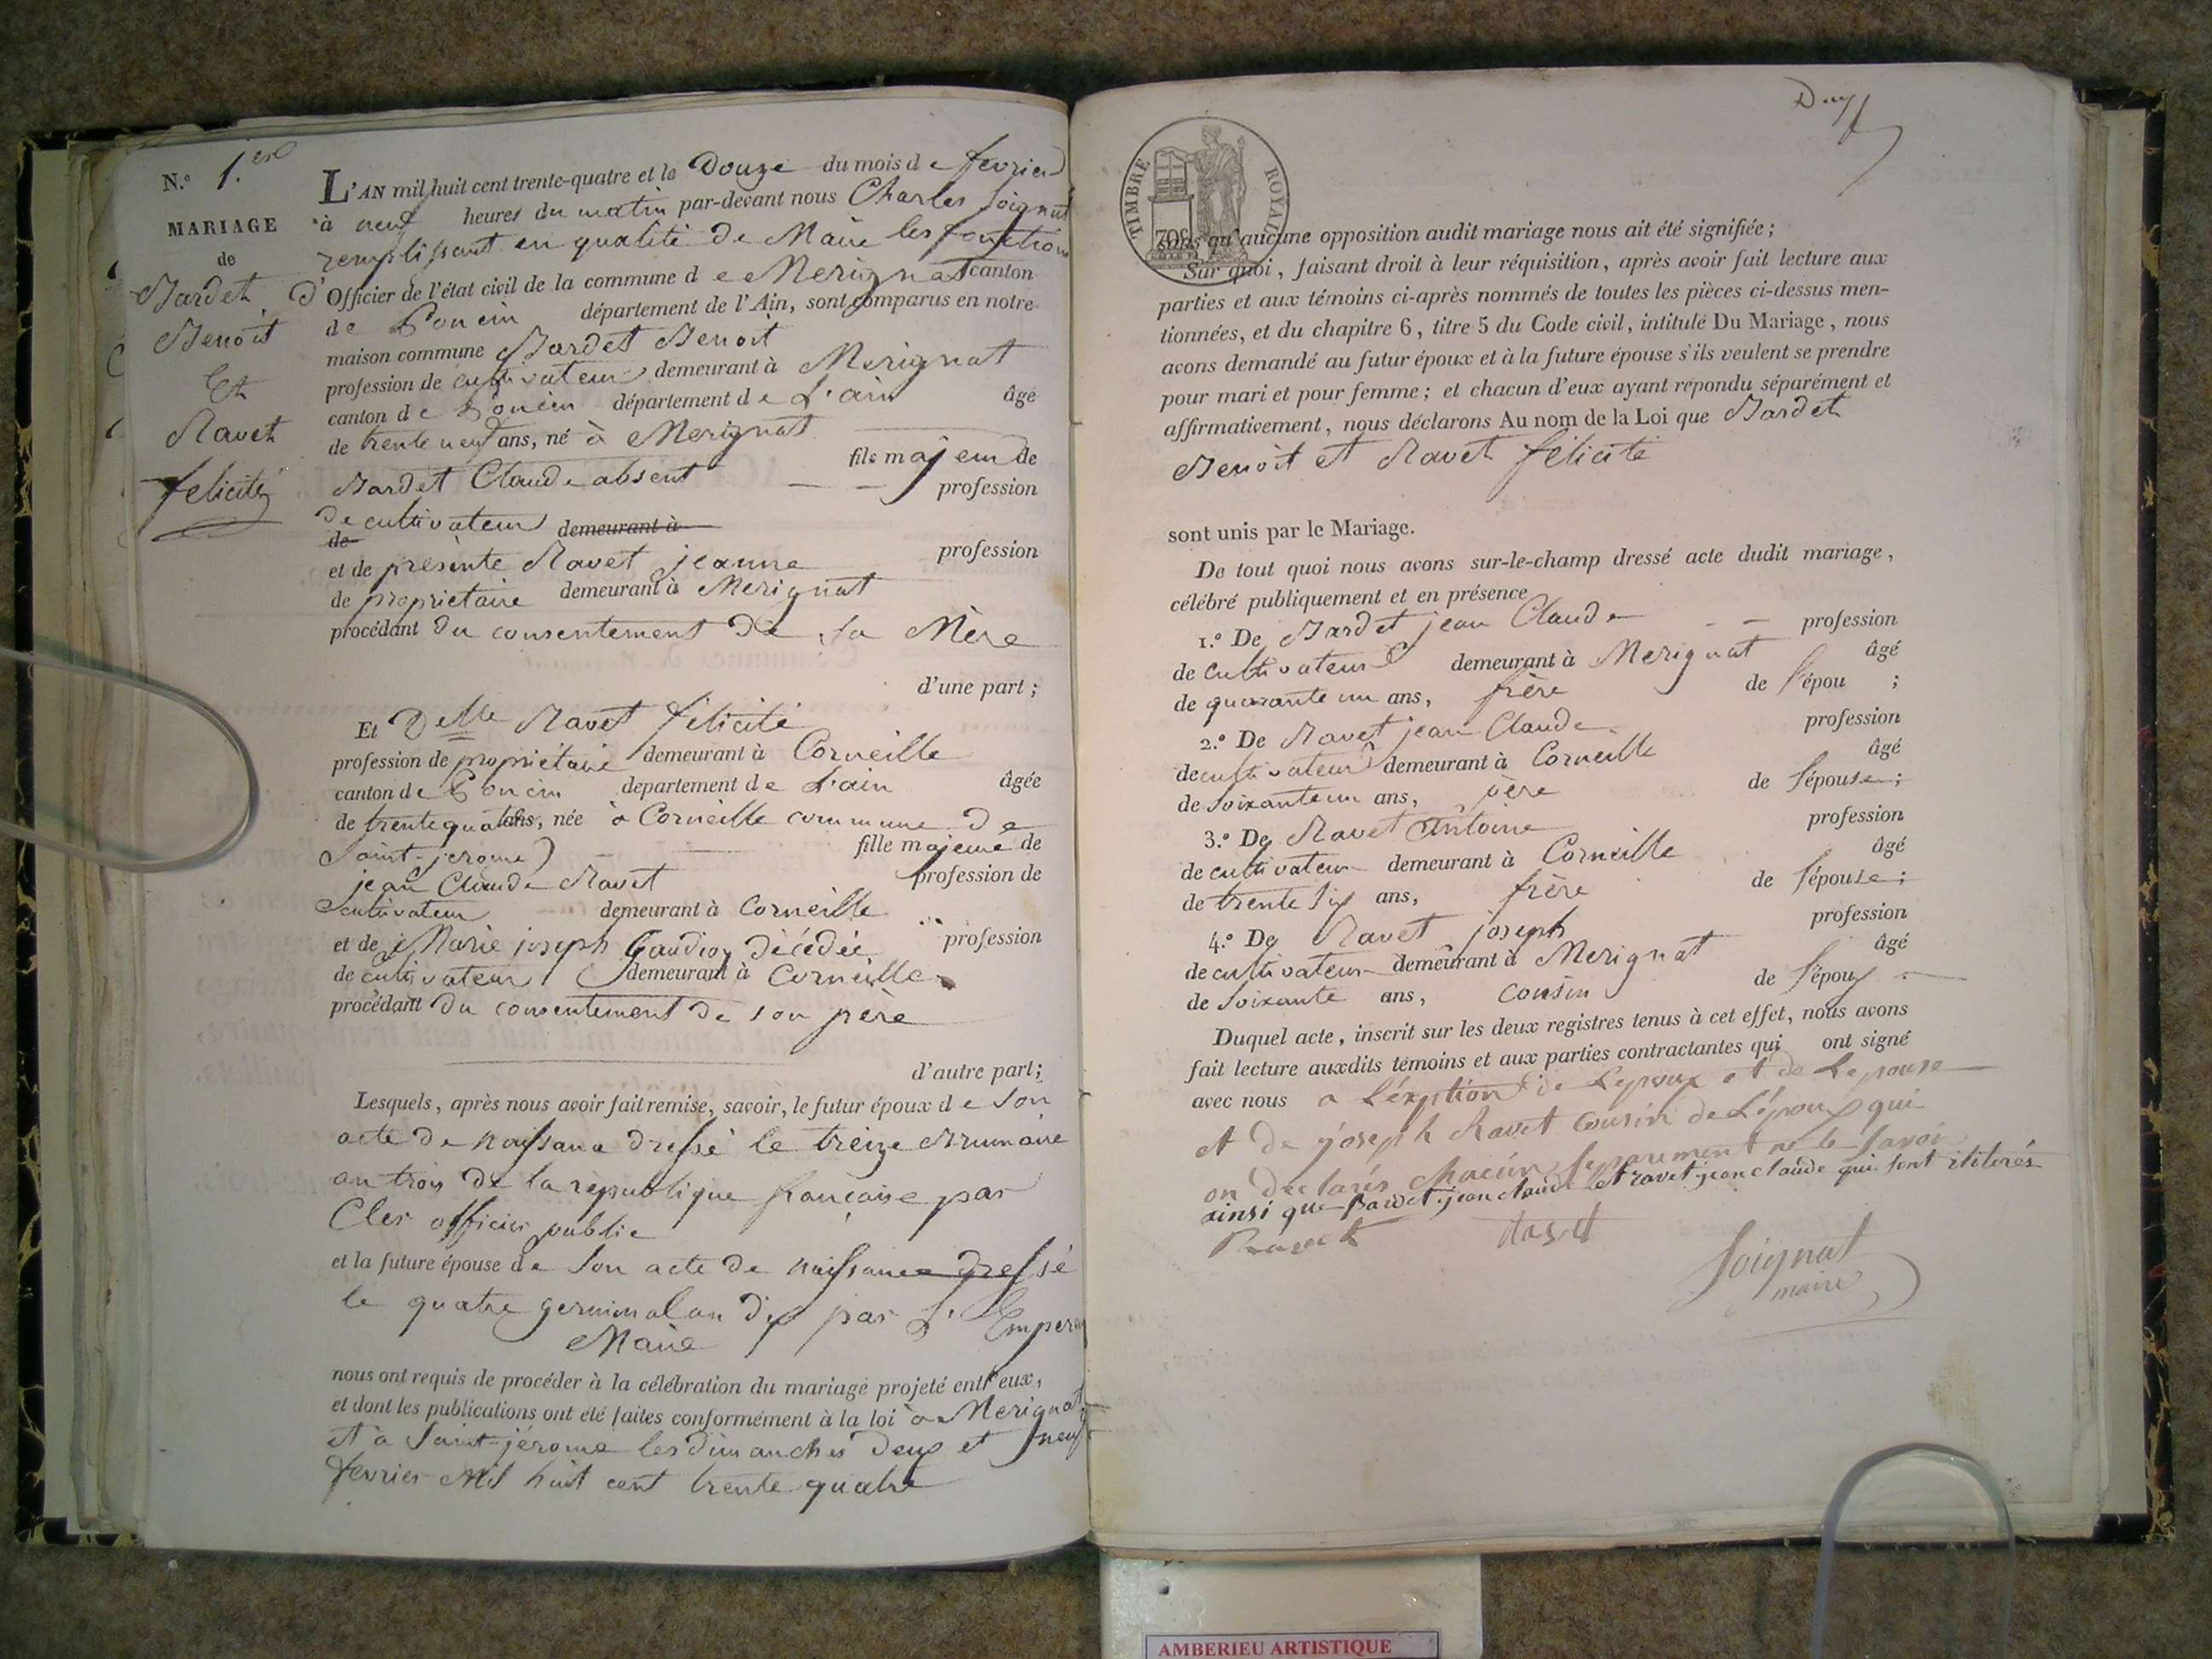 N.º 1.er
MARIAGE
de
Bardet
Benoît
Et
Ravet
felicité
L'AN mil huit cent trente-quatre et le Douze du mois de fevrier
à neuf heures du matin par-devant nous Charles Soignat
remplissant en qualité de Maire les fonctions
d'Officier de l'état civil de la commune de Merignat canton
de Poncin département de l'Ain, sont comparus en notre
maison commune Bardet Benoit
profession de cultivateur demeurant à Merignat
canton de Poncin département de L'ain âgé
de trente neuf ans, né à Merignat
fils majeur de
Bardet Claude absent profession
de cultivateur demeurant à
de
et de présente Ravet jeanne profession
de proprietaire demeurant à Merignat
procédant du consentement de sa Mère
d'une part ;
Et Delle Ravet félicité
profession de propriétaire demeurant à Corneille
canton de Poncin département de L'ain âgée
de trente quatre ans, née à Corneille commune de
Saint-jerome fille majeure de
jean Claude Ravet profession de
cultivateur demeurant à Corneille
et de Marie joseph Gaudion décédée profession
de cultivateur demeurant à Corneille
procédant du consentement de son père
d'autre part ;
Lesquels, après nous avoir fait remise, savoir, le futur époux de son
acte de naissance dressé le treize Brumaire
an trois de la république française par
Cler officier public
et la future épouse de son acte de naissance dressé
le quatre germinal an dix par L'Empereur
Maire
nous ont requis de procéder à la célébration du mariage projeté entr'eux,
et dont les publications ont été faites conformément à la loi à Merignat
et à Saint-jérome les dimanches deux et neuf
fevrier Mil huit cent trente quatre
TIMBRE ROYAL
70c
sans qu'aucune opposition audit mariage nous ait été signifiée ;
Sur quoi, faisant droit à leur réquisition, après avoir fait lecture aux
parties et aux témoins ci-après nommés de toutes les pièces ci-dessus men-
tionnées, et du chapitre 6, titre 5 du Code civil, intitulé Du Mariage, nous
avons demandé au futur époux et à la future épouse s'ils veulent se prendre
pour mari et pour femme ; et chacun d'eux ayant répondu séparément et
affirmativement, nous déclarons Au nom de la Loi que Bardet
Benoit et Ravet félicité
sont unis par le Mariage.
De tout quoi nous avons sur-le-champ dressé acte dudit mariage,
célébré publiquement et en présence
1.º De Bardet jean Claude profession
de cultivateur demeurant à Merignat âgé
de quarante un ans, frère de l'épou ;
2.º De Ravet jean Claude profession
de cultivateur demeurant à Corneille âgé
de soixante un ans, père de l'épouse ;
3.º De Ravet Antoine profession
de cultivateur demeurant à Corneille âgé
de trente six ans, frère de l'épouse ;
4.º De Ravet joseph profession
de cultivateur demeurant à Merignat âgé
de soixante ans, cousin de l'époux .
Duquel acte, inscrit sur les deux registres tenus à cet effet, nous avons
fait lecture auxdits témoins et aux parties contractantes qui ont signé
avec nous a l'éxption de Lepoux et de Lepouse
et de joseph Ravet cousin de L'époux qui
on déclarés chacun separement ne le savoir
ainsi que Bardet jean claude et ravet jean claude qui sont ititérés
Ravet
Soignat
maire
AMBERIEU ARTISTIQUE